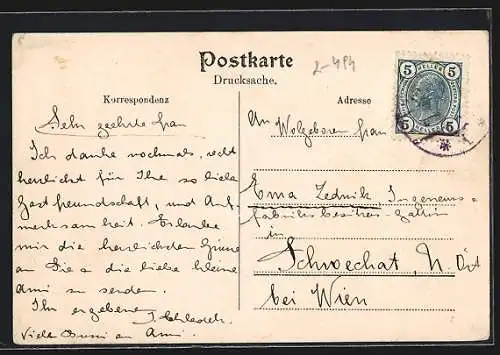 Postkarte
Drucksache.
2-494
5 HELLER 5
5 HELLER 5
Korrespondenz
Adresse
Sehr geehrte Frau
Ich danke nochmals, recht
herzlichst für Ihre so liebe
Gastfreundschaft, und Auf-
merksamkeit. Erlaube
mir die herzlichsten Grüsse
an Sie & die liebe kleine
Ami zu senden.
Ihr ergebener
Viele Bussi an Ami.
An Wolgeboren Frau
Ema Zednik Ingeneurs-
fabriksbesitzers-Gattin
in
Schwechat, N. Öst
bei Wien